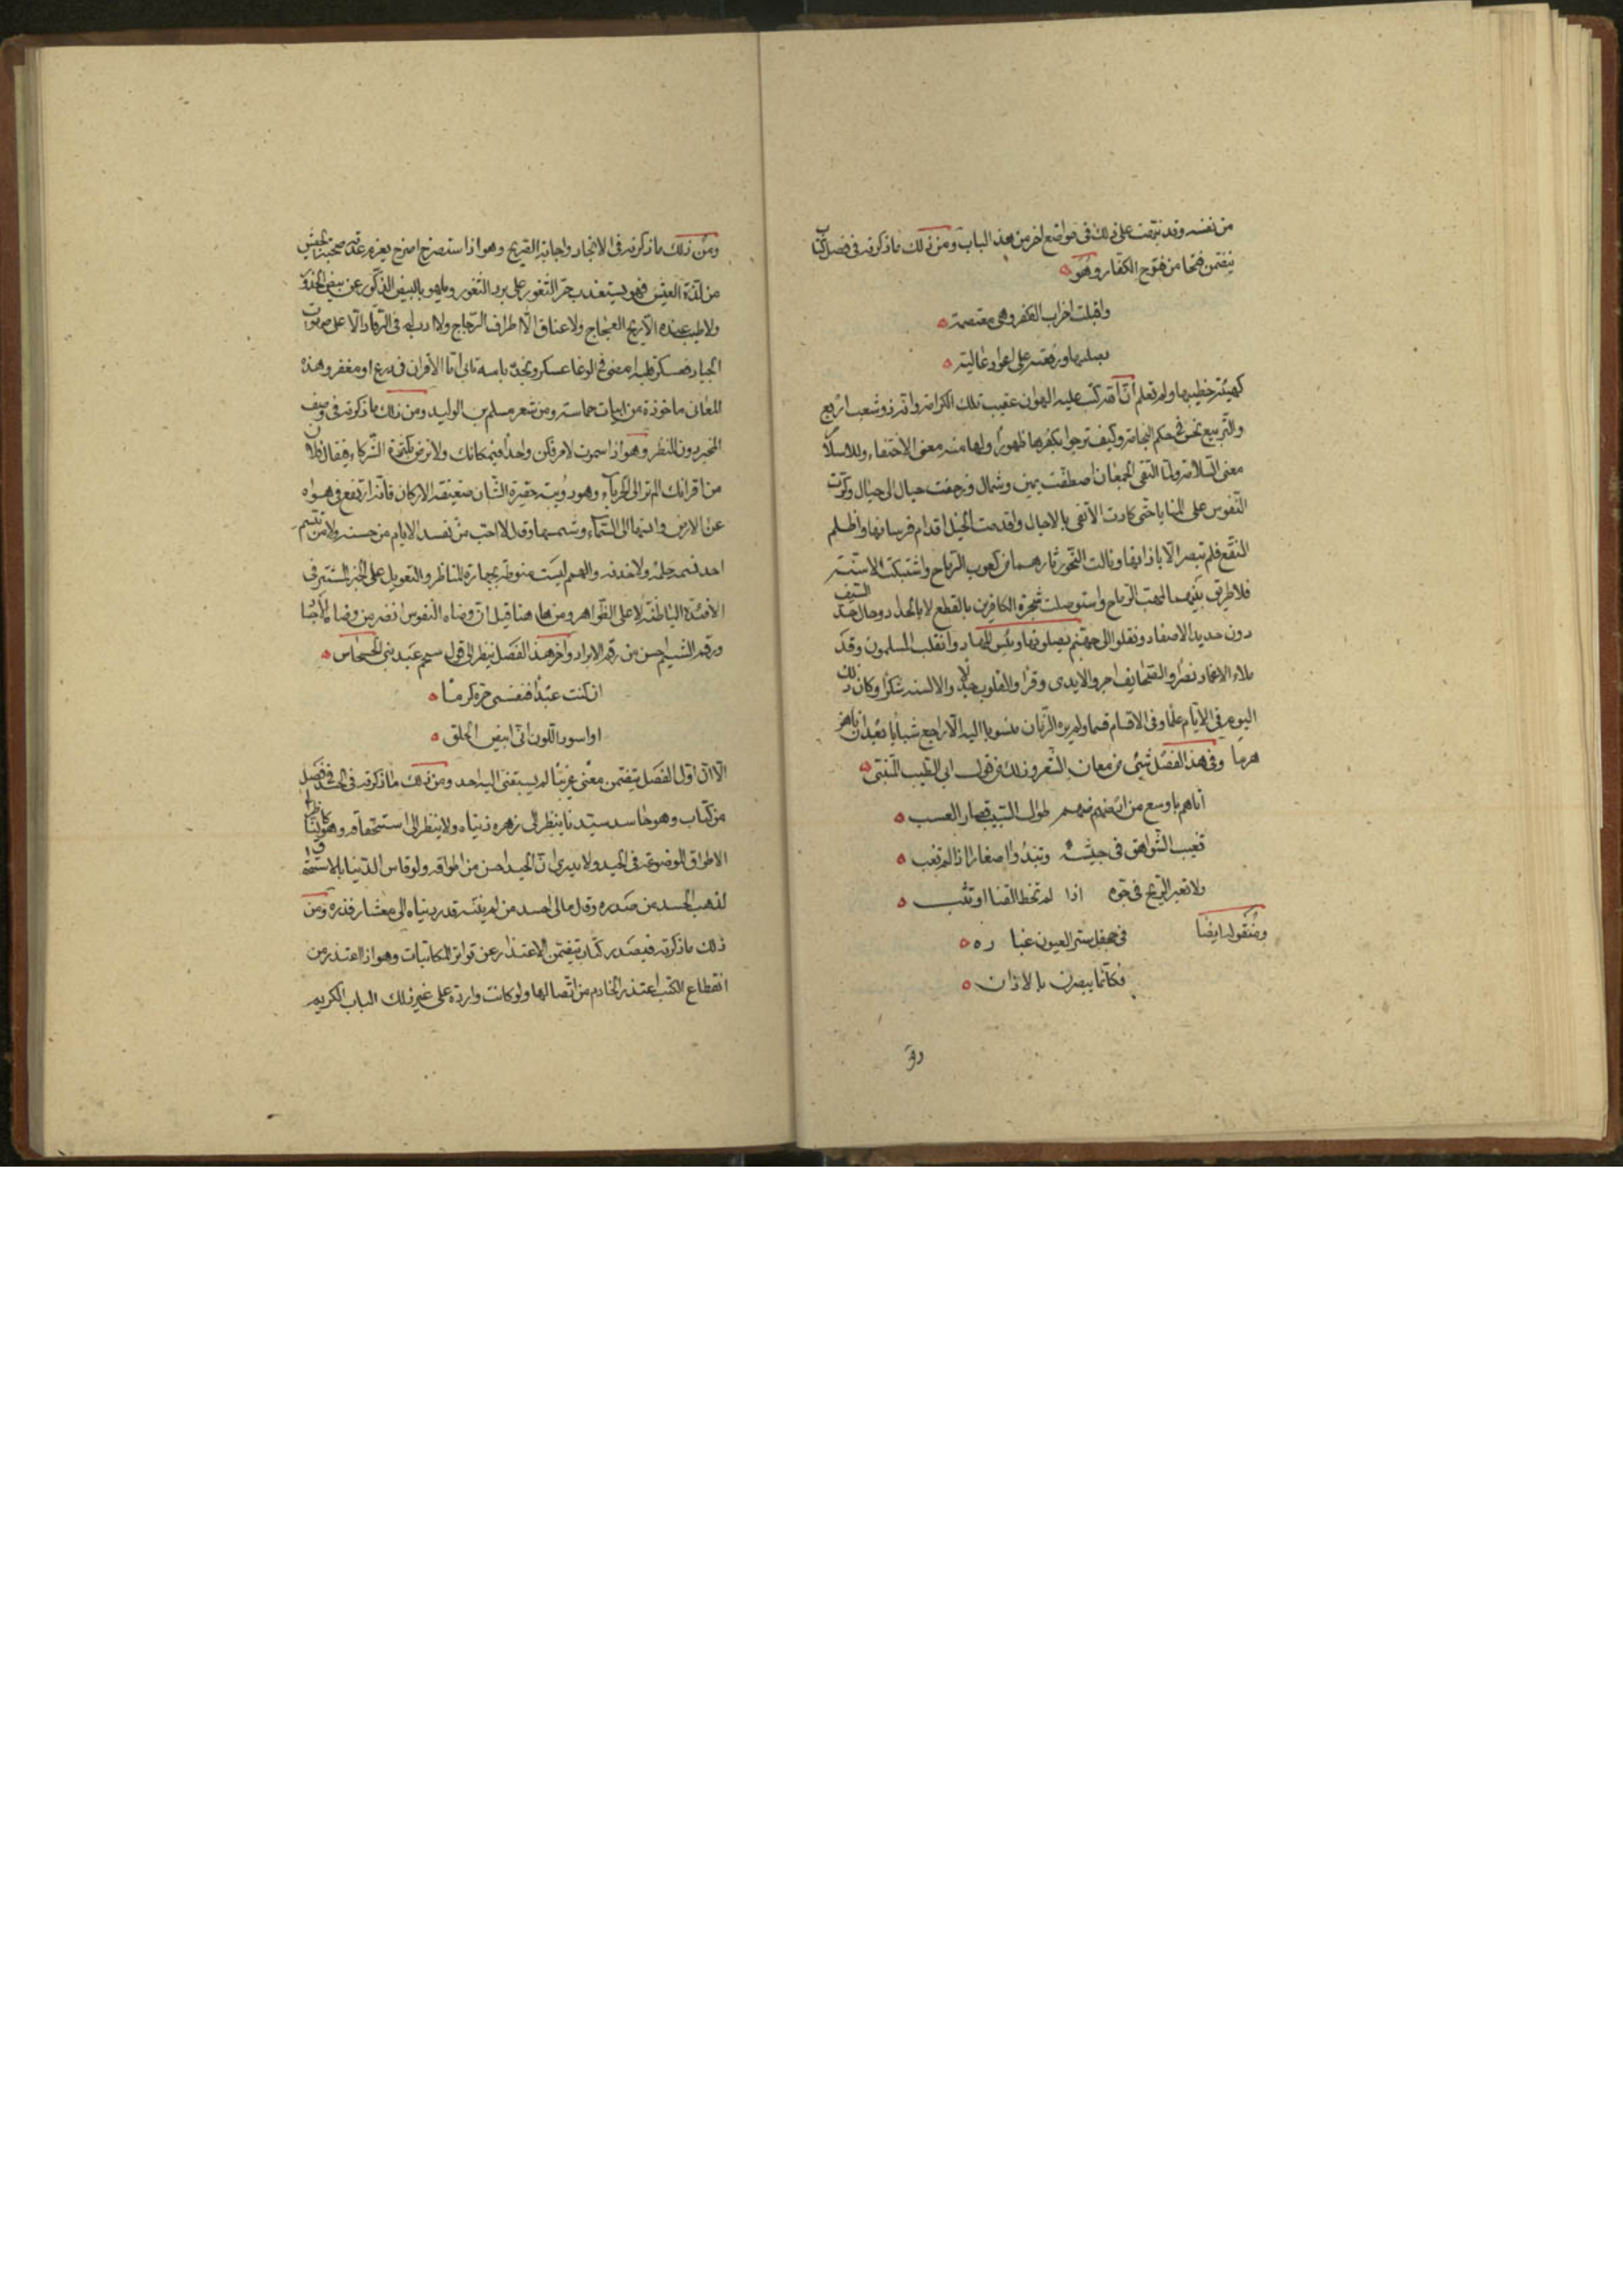 من نفسه وقد نبهت على ذلك فى مواضع اخر من هذا الباب ومن ذلك ما ذكرته فى فصل كتاب
يتضمن فتحا من فتوح الكفار وهو
واقبلت احزاب الكفر وهى معتصمة
بصلبها ورفعته على اعواد عالية
كهيئة خطيبها ولم تعلم انه مركب عليه الهوان عقيب تلك الكرامة وانه ذو شعب اربع
والتربيع نحس فى حكم النجامة وكيف ترجوا بكفرها ظهورا ولها منه معنى الاختفاء وللاسلام
معنى السلامة ولما التقى الجمعان اصطفت يمين وشمال وزحفت جبال الى جبال وكرت
النفوس على المنايا حتى كادت الا تفى بالاجال واقدمت الخيل اقدام فرسانها واظلم
النقع فلم تبصر الا باذانها ونالت النحور ثارهما من كعوب الرماح واشتبكت الاسنة
فلا طريق بينهما لمهب الرياح واستوصلت شجرة الكافرين بالقطع لا بالجداد وحال حد السيف
دون حديد الاصفاد ونقلوا الى جهنم يصلونها وبئس المهاد وانقلب المسلمون وقد
ملاء الاغماد نصرا والصحايف اجرا والايدى وقرا والقلوب جذلا والالسنه شكرا وكان ذلك
اليوم فى الايام علما وفى الاقسام قسما ولم يره الزمان منسوبا اليه الا راجع شبابا بعد ان ناهز
هرما وفى هذا الفصل شئ من معان الشعر وذلك من قول ابى الطيب المتنبى
اتاهم باوسع من ارضهم طوال السبيب قصار العسب
تغيب الشواهق فى جيشه وتبدوا صغارا اذا لم تغب
ولا تعبر الريح فى جوه اذا لم تخط القنا او تثب
ومن قوله ايضا
فى جحفل ستر العيون غباره
فكانما يبصرن بالاذان
ومن
ومن ذلك ما ذكرته فى الانجاد واجابة الصريخ وهو اذا استصرخ اصرخ بعزم عنده صحبة الجيش
من لذة العيش فهو يستعذب حر الثغور على برد الثغور ويلهو بالبيض الذكور عن بيض الخدور
ولا طيب عنده الا ريح العجاج ولا عناق الا اطراف الزجاج ولا ادب له فى الرقاد الا على صهوات
الجياد فعسكر قلبه امضى فى الوغا عسكر ونجدة باسه تاتى اتا الاقران فى درع او مغفر وهذه
المعانى ماخوذة من ابيات حماسة ومن شعر مسلم بن الوليد ومن ذلك ما ذكرته فى وصف
المخبر دون المنظر وهو اذا سموت لامر فكن واحدا فيمكانك ولا ترض بكثرة الشركاء فيقال فلان
من اقرانك الم تر الى الحرباء وهو دويبة حقيرة الشان ضعيفة الاركان فانه ارتفع فى هواه
عن الارض وانتها الى السماء وشمسها وقل لا احب من تفسد الايام من حسنه ولا من تقسم
احد فيه حله ولا خدنه والهمم ليست منوطة بجهارة المناظر والتعويل على الخبر المستتر فى
الافئدة الباطنة لا على الظواهر ومن هاهنا قيل ان وضاه النفوس انضر من وضا الاجسام
ورقم الشيم احسن من رقم الابراد واخر هذا الفصل ينظر الى قول سحيم عبد بنى الحسحاس
ان كنت عبدا فنفسى حرة كرما
او اسود اللون انى ابيض الخلق
الا ان اول الفصل يتضمن معنى غريبا لم يسبقنى اليه احد ومن ذلك ما ذكرته فى الحسد فى فصل
من كتاب وهو حاسد سيدنا ينظر الى زهره دنياه ولا ينظر الى استحقاقه وهو كناظر الى
الاطواق الموضوعة فى الجيد ولا يدرى ان الجيد احسن من اطواقه ولو قاس الدنيا بالاستحقاق
لذهب الحسد من صدره وقل مالى احسد من لم ينته قدر دنياه الى معشار قدره ومن
ذلك ما ذكرته فى صدر كتاب يتضمن الاعتذار عن تواتر المكاتبات وهو اذا اعتذر من
انقطاع الكتب اعتذر الخادم من اتصالها ولو كانت وارده على غير ذلك الباب الكريم